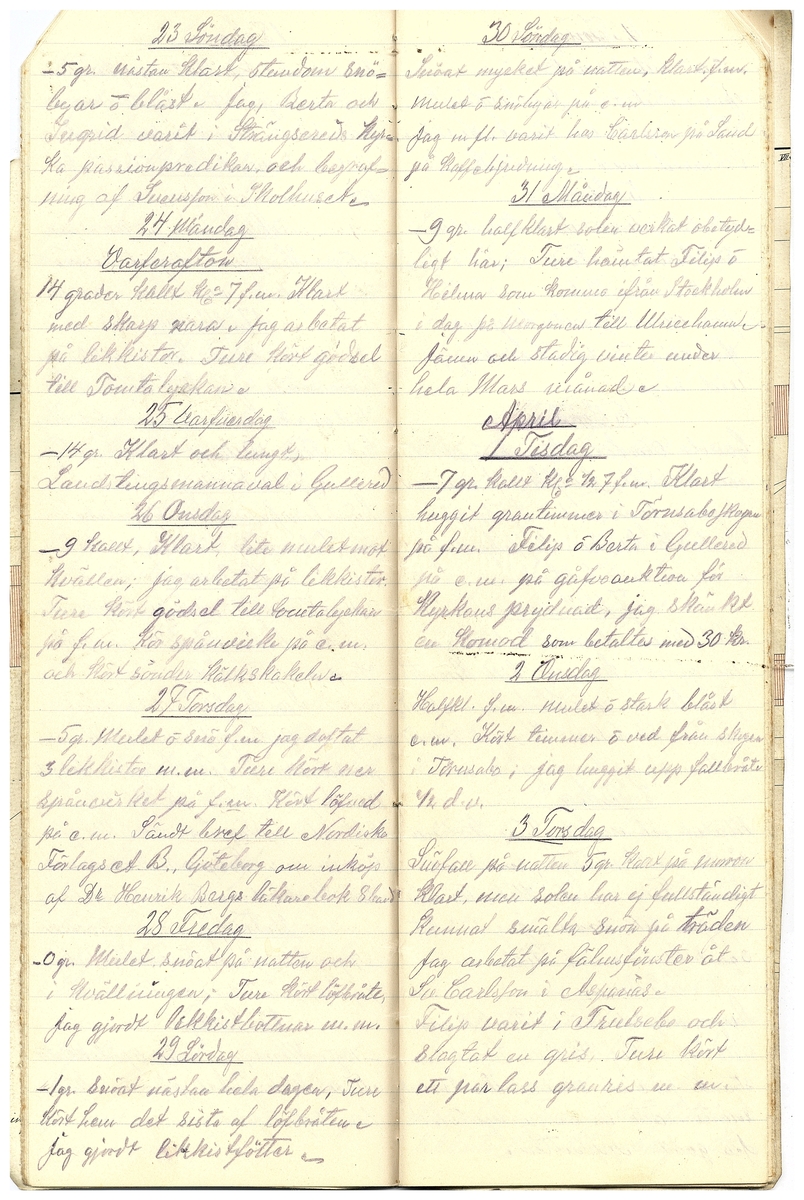 23 Söndag
-5 gr. nästan Klart, stundom snö=
byar ö blåst. Jag, Berta och
Ingrid varit i Strängsereds Kyr=
ka passionpredikan. och begraf=
ning af Svensson i Skolhuset.
24 Måndag
Varfrafton
14 grader kallt kl. 7 f.m. Klart
med skarp jag arbetat
på likkistor. Ture kört gödsel
till Tomtalyckan.
25 Varfruerdag
-14 gr. Klart och lungt,
Landstingsmannaval i Gullered
26 Onsdag
-9 kallt, Klart, lite mulet mot
kvällen; jag arbetat på likkistor.
Ture kört gödsel till Tomtalyckan
på f.m. Kör spånvirke på e.m.
och kört sönder
27 Torsdag
-5 gr. Mulet ö snö f.m. jag
3 likkistor m.m. Ture kört mer
spånvirket på f.m. Kört löfved
på e.m. Sändt bref till Nordiska
Förlags A B., Göteborg om inköp
af Dr Henrik Bergs Läkarebok 3 band
28 Fredag
-0 gr. Mulet, snöat på natten och
i kvällningen; Ture kört löfbråte,
jag gjordt likkistbottnar m.m.
29 Lördag
-1 gr. snöat nästan hela dagen, Ture
kört hem det sista af löfbråten.
Jag gjordt likkistfötter.
30 Söndag
Snöat mycket på natten, Klart f.m.
mulet ö snöbyar på e.m
Jag m.fl. varit hos Carlsson på Sand
på Kaffebjudning.
31 Måndag
-9 gr. halfklart solen verkat obetyd=
ligt här; Ture hämtat Filip ö
Hilma som kommo ifrån Stockholm
i dag på morgonen till Ulricehamn.
Jämn och stadig vinter under
hela Mars månad.
April
1 Tisdag
-7 gr. kallt kl. 1/2 7 f.m. Klart
huggit grantimmer i Törnsaboskogen
på f.m. Filip ö Berta i Gullered
på e.m. på gåfvoauktion för
Kyrkans prydnad, jag skänkt
en Komod som betaltes med 30 kr.
2 Onsdag
Halfkl. f.m. mulet ö stark blåst
e.m. Kört timmer ö ved från skogen
i Törnsabo; jag huggit upp fallbråte
1/2 d.v.
3 Torsdag
på natten 5 gr. Klart på morron
Klart, men solen har ej fullständigt
kunnat smälta snön på träden
Jag arbetat på åt
Carlsson i Aspenäs.
Filip varit i Trulsebo och
slagtat en gris. Ture kört
ett par lass granris m. m.